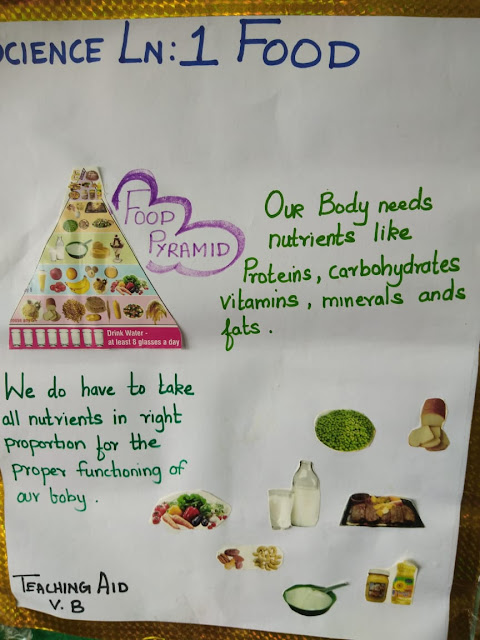 SCIENCE LN:1 FOOD
FOOD
PYRAMID
Our Body needs
nutrients like
Proteins, carbohydrates
vitamins, minerals ands
fats.
Drink Water -
at least 8 glasses a day
We do have to take
all nutrients in right
proportion for the
proper functioning of
our boby.
TEACHING AID
V. B